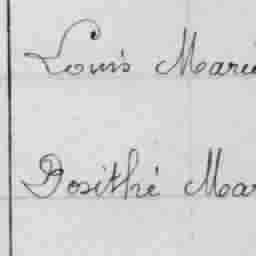 Louis Marie
Dosithé Mar